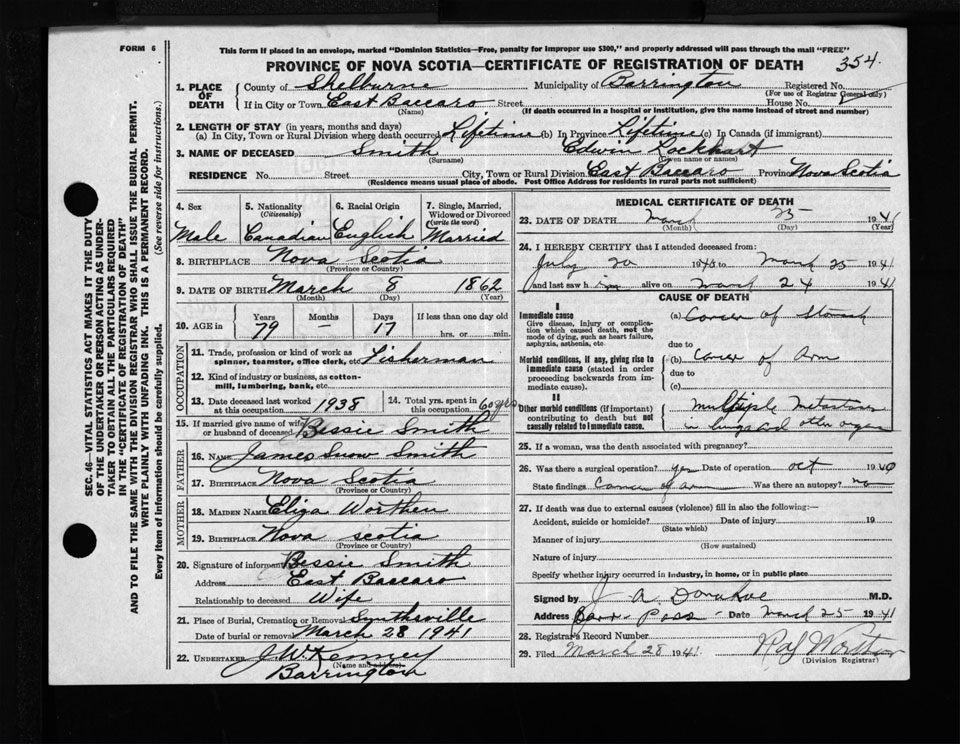 FORM 6
This form if placed in an envelope, marked "Dominion Statistics—Free, penalty for improper use $300," and properly addressed will pass through the mail "FREE"
PROVINCE OF NOVA SCOTIA—CERTIFICATE OF REGISTRATION OF DEATH 354
1. PLACE OF DEATH { County of Shelburne Municipality of Barrington Registered No.
(For use of Registrar General only)
If in City or Town East Baccaro Street House No.
(Name) (If death occurred in a hospital or institution, give the name instead of street and number)
2. LENGTH OF STAY (in years, months and days)
(a) In City, Town or Rural Division where death occurred Lifetime (b) In Province Lifetime (c) In Canada (if immigrant)
3. NAME OF DECEASED Smith Edwin Lockhart
(Surname) (Given name or names)
RESIDENCE No. Street City, Town or Rural Division East Baccaro Province Nova Scotia
(Residence means usual place of abode. Post Office Address for residents in rural parts not sufficient)
4. Sex Male
5. Nationality (Citizenship) Canadian
6. Racial Origin English
7. Single, Married, Widowed or Divorced (write the word) Married
8. BIRTHPLACE Nova Scotia
(Province or Country)
9. DATE OF BIRTH March 8 1862
(Month) (Day) (Year)
10. AGE in { Years Months Days If less than one day old
79 — 17 hrs. or min.
OCCUPATION
11. Trade, profession or kind of work as spinner, teamster, office clerk, etc. Fisherman
12. Kind of industry or business, as cotton-mill, lumbering, bank, etc.
13. Date deceased last worked at this occupation 1938
14. Total yrs. spent in this occupation 60 yrs
15. If married give name of wife or husband of deceased Bessie Smith
FATHER
16. NAME James Snow Smith
17. BIRTHPLACE Nova Scotia
(Province or Country)
MOTHER
18. MAIDEN NAME Eliza Worthen
19. BIRTHPLACE Nova Scotia
(Province or Country)
20. Signature of informant Bessie Smith
Address East Baccaro
Relationship to deceased Wife
21. Place of Burial, Cremation or Removal Smithsville
Date of burial or removal March 28 1941
22. UNDERTAKER J. W. Kenney
(Name and address)
Barrington
MEDICAL CERTIFICATE OF DEATH
23. DATE OF DEATH March 25 1941
(Month) (Day) (Year)
24. I HEREBY CERTIFY that I attended deceased from:
July 20 1940 to March 25 1941
and last saw him alive on March 24 1941
CAUSE OF DEATH
I
Immediate cause
Give disease, injury or complication which caused death, not the mode of dying, such as heart failure, asphyxia, asthenia, etc.
(a) Cancer of Stomach
due to
Morbid conditions, if any, giving rise to immediate cause (stated in order proceeding backwards from immediate cause).
(b) Cancer of Arm
due to
(c)
II
Other morbid conditions (if important) contributing to death but not causally related to immediate cause.
multiple metastases
in lungs and other organs
25. If a woman, was the death associated with pregnancy?
26. Was there a surgical operation? yes Date of operation Oct 1940
State findings Cancer of arm Was there an autopsy? no
27. If death was due to external causes (violence) fill in also the following:—
Accident, suicide or homicide? Date of injury 19
(State which)
Manner of injury
(How sustained)
Nature of injury
Specify whether injury occurred in industry, in home, or in public place
Signed by J A Donahoe M.D.
Address Barr. Pass — Date March 25 1941
28. Registrar's Record Number
29. Filed March 28 1941. Ray Worthen
(Division Registrar)
SEC. 46—VITAL STATISTICS ACT MAKES IT THE DUTY
OF THE UNDERTAKER OR PERSON ACTING AS UNDER-
TAKER TO OBTAIN ALL THE PARTICULARS REQUIRED
IN THE "CERTIFICATE OF REGISTRATION OF DEATH"
AND TO FILE THE SAME WITH THE DIVISION REGISTRAR WHO SHALL ISSUE THE BURIAL PERMIT.
WRITE PLAINLY WITH UNFADING INK. THIS IS A PERMANENT RECORD.
Every item of information should be carefully supplied. (See reverse side for instructions.)